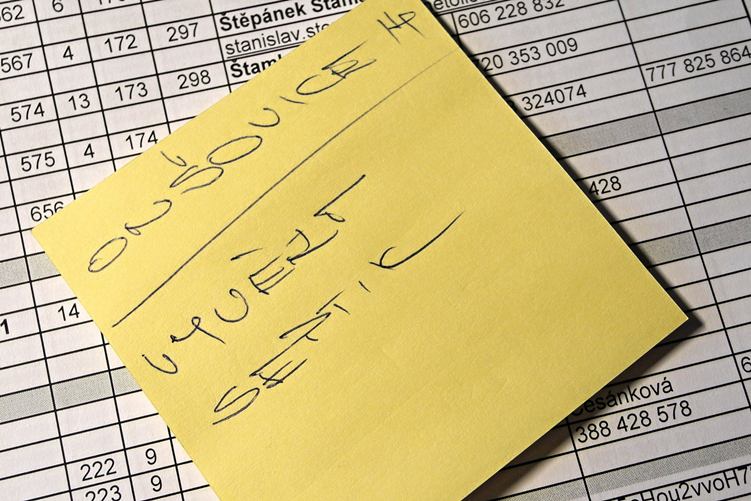 562 6
Štěpánek Stan
606 228 832
567 4 172 297
stanislav.ste
720 353 009
574 13 173 298
Štaml
324074
777 825 864
575 4 174
ONŠOVICE
656
428
VYVÉZT
SEPTIC
1 14
Česánková
388 428 578
222 9
223 9